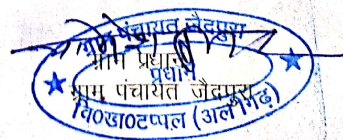 ग्राम पंचायत जैदपुरा
ग्राम प्रधान
प्रधान
ग्राम पंचायत जैदपुरा
वि०खा०टप्पल (अलीगढ़)